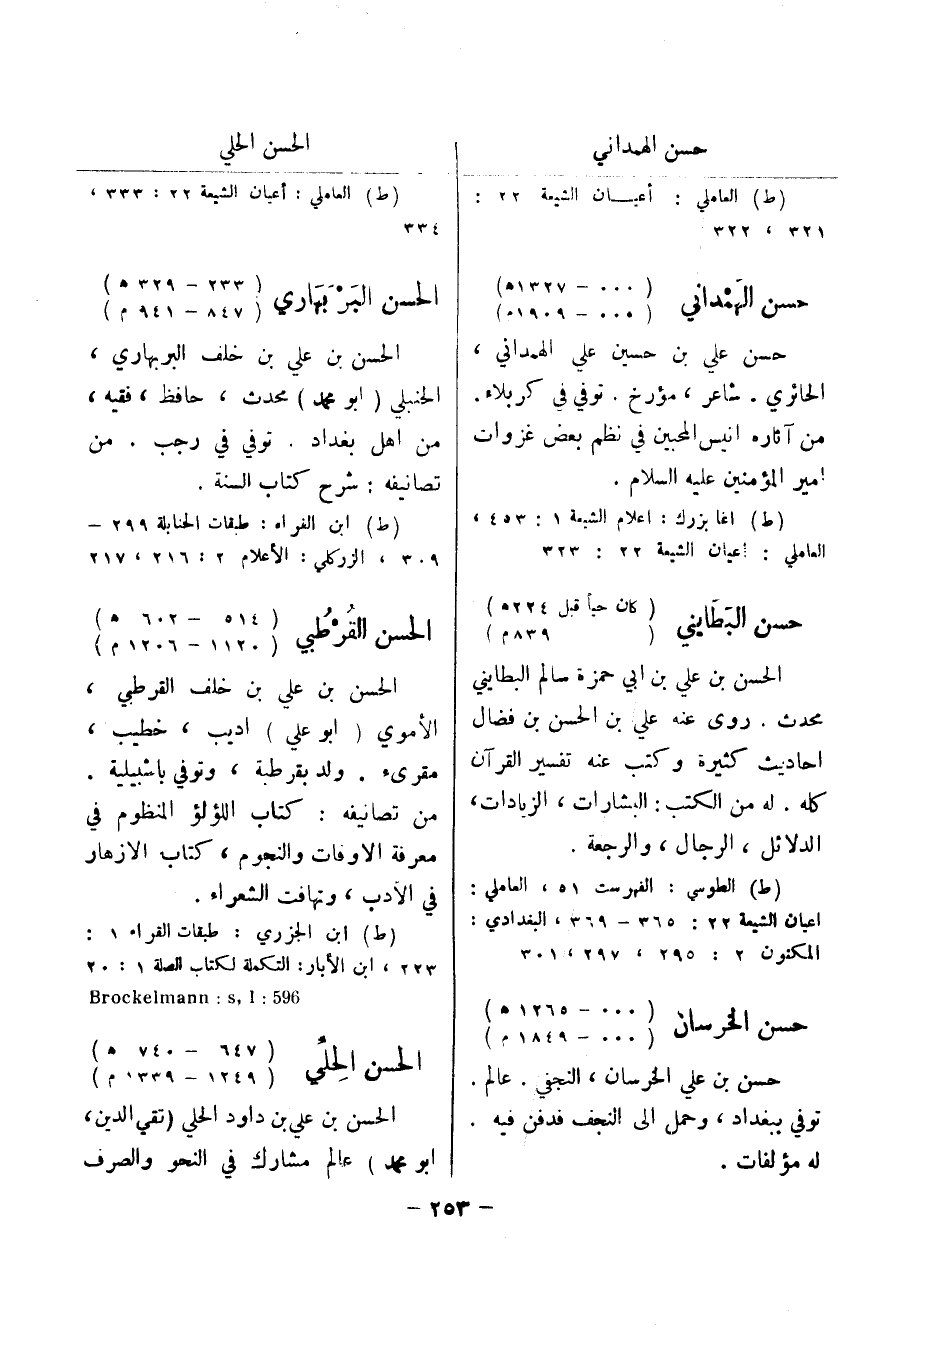 حسن الهمداني
(ط) العاملي : أعيـــان الشيعة ٢٢ :
٣٢١ ، ٣٢٢
حسن الهَمْداني
( ٠٠٠ – ١٣٢٧ه)
( ٠٠٠ – ١٩٠٩م)
حسن علي بن حسين علي الهمداني ،
الحائري . شاعر ، مؤرخ . توفي في كربلاء.
من آثاره انيس المحبين في نظم بعض غزوات
امير المؤمنين عليه السلام .
(ط) اغا بزرك : اعلام الشيعة ١ : ٤٥٣ ،
العاملي : اعيان الشيعة ٢٢ : ٣٢٣
حسن البَطَايني
( كان حياً قبل ٢٢٤ه )
( ٨٣٩م )
الحسن بن علي بن ابي حمزة سالم البطايني
محدث . روى عنه علي بن الحسن بن فضال
احاديث كثيرة وكتب عنه تفسير القرآن
كله . له من الكتب : البشارات ، الزيادات،
الدلائل ، الرجال ، والرجعة .
(ط) الطوسي : الفهرست ٥١ ، العاملي :
اعيان الشيعة ٢٢ : ٣٦٥ – ٣٦٩ ، البغدادي :
المكنون ٢ : ٢٩٥ ، ٢٩٧ ، ٣٠١
حسن الخرسان
( ٠٠٠ – ١٢٦٥ ه )
( ٠٠٠ – ١٨٤٩ م )
حسن بن علي الخرسان ، النجفي . عالم .
توفي ببغداد ، وحمل الى النجف فدفن فيه .
له مؤلفات .
الحسن الحلي
(ط) العاملي : أعيان الشيعة ٢٢ : ٣٣٣ ،
٣٣٤
الحسن البَرْبَهاري
( ٢٣٣ – ٣٢٩ ه )
( ٨٤٧ – ٩٤١ م )
الحسن بن علي بن خلف البربهاري ،
الحنبلي ( ابو محمد ) محدث ، حافظ ، فقيه ،
من اهل بغداد . توفي في رجب . من
تصانيفه : شرح كتاب السنة .
(ط) ابن الفراء : طبقات الحنابلة ٢٩٩ –
٣٠٩ ، الزركلي : الأعلام ٢ : ٢١٦ ، ٢١٧
الحسن القُرْطُبي
( ٥١٤ – ٦٠٢ ه )
( ١١٢٠ – ١٢٠٦ م )
الحسن بن علي بن خلف القرطبي ،
الأموي ( ابو علي ) اديب ، خطيب ،
مقرىء . ولد بقرطبة ، وتوفي باشبيلية .
من تصانيفه : كتاب اللؤلؤ المنظوم في
معرفة الاوقات والنجوم ، كتاب الازهار
في الآدب ، وتهافت الشعراء .
(ط) ابن الجزري : طبقات القراء ١ :
٢٢٣ ، ابن الأبار : التكملة لكتاب الصلة ١ : ٢٠
Brockelmann : s, I : 596
الحسن الحِلّي
( ٦٤٧ – ٧٤٠ ه )
( ١٢٤٩ – ١٣٣٩ م )
الحسن بن علي بن داود الحلي (تقي الدين،
ابو محمد ) عالم مشارك في النحو والصرف
– ٢٥٣ –